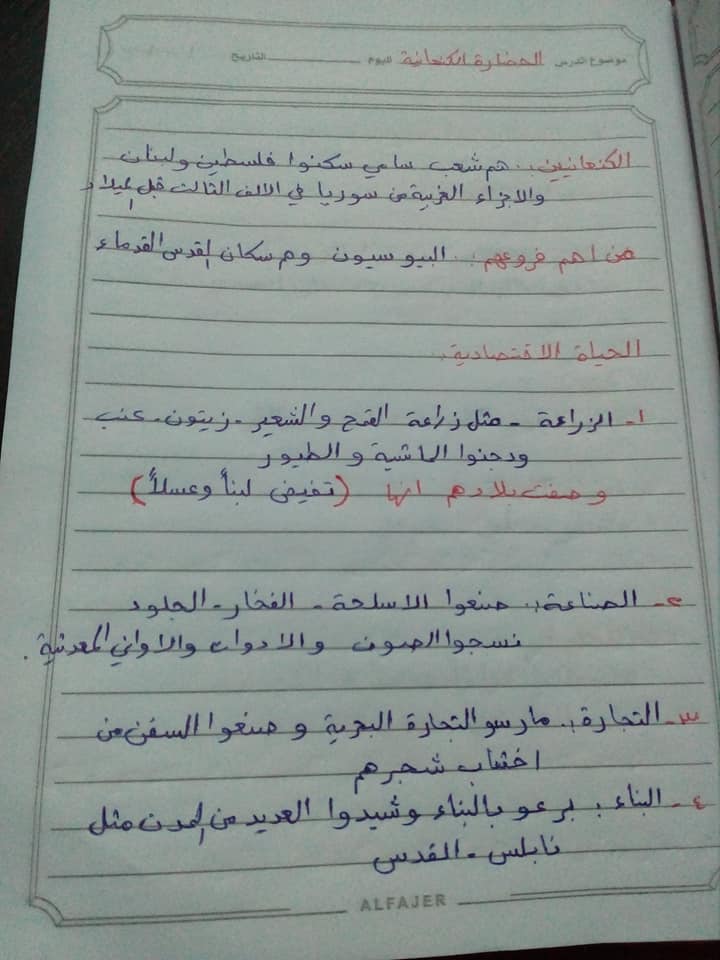 موضوع الدرس الحضارة الكنعانية اليوم ــــــــ التاريخ
الكنعانيين : هم شعب سامي سكنوا فلسطين ولبنان
والاجزاء الغربية من سوريا في الالف الثالث قبل الميلاد
من اهم فروعهم : اليبوسيون وهم سكان القدس القدماء
الحياة الاقتصادية :
١- الزراعة - مثل زراعة القمح والشعير - زيتون - عنب
ودجنوا الماشية و الطيور
وصفت بلادهم انها (تفيض لبناً وعسلاً)
٢- الصناعة : صنعوا الاسلحة - الفخار - الجلود
نسجوا الصوف والادوات والاواني المعدنية .
٣- التجارة : مارسو التجارة البحرية و صنعوا السفن من
اخشاب شجرهم
٤- البناء : برعو بالبناء وشيدوا العديد من المدن مثل
نابلس - القدس
ALFAJER